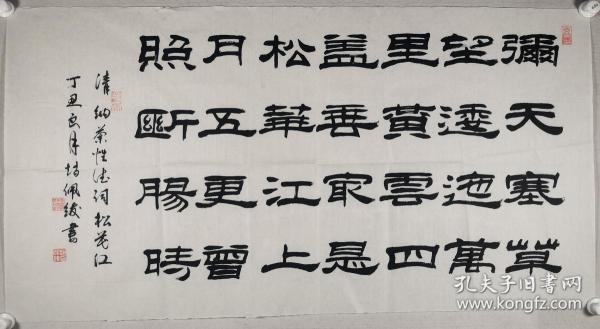 彌天塞草
望逶迤萬
里黃雲四
盖垂最是
松華江上
月五更曾
照斷腸時
清 納蘭性德詞 松花江
丁丑良月佩書
孔夫子旧书网
www.kongfz.com